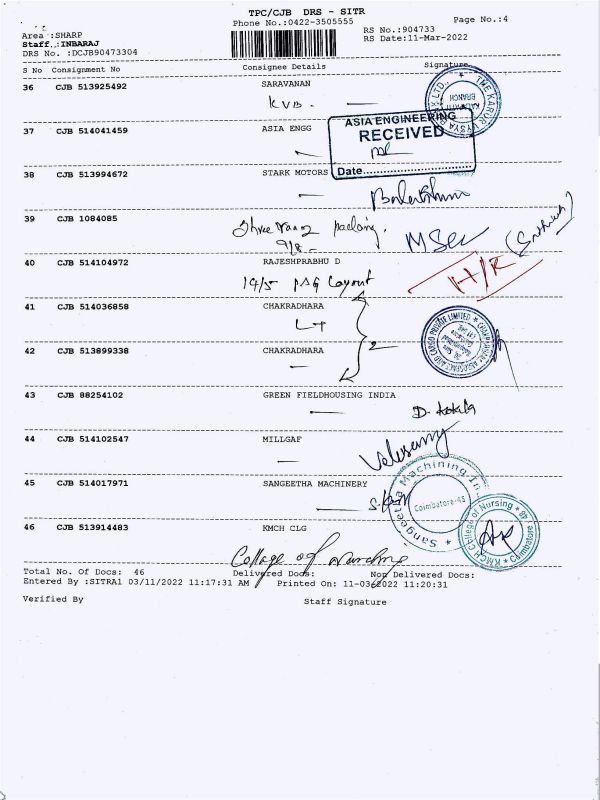 TPC/CJB DRS - SITR
Phone No.:0422-3505555
Page No.:4
Area :SHARP
RS No.:904733
Staff :INBARAJ
RS Date:11-Mar-2022
DRS No. :DCJB90473304
S No Consignment No Consignee Details Signature
36 CJB 513925492 SARAVANAN
KVB.
THE KARUR VYSYA BANK LTD.,
BRANCH
37 CJB 514041459 ASIA ENGG
ASIA ENGINEERING
RECEIVED
Date
38 CJB 513994672 STARK MOTORS
39 CJB 1084085
MSec
40 CJB 514104972 RAJESHPRABHU D
H/R
19/5 PSG Layout
41 CJB 514036858 CHAKRADHARA
LT
2
42 CJB 513899338 CHAKRADHARA
43 CJB 88254102 GREEN FIELDHOUSING INDIA
D. kokila
44 CJB 514102547 MILLGAF
Velusamy
45 CJB 514017971 SANGEETHA MACHINERY
Sangeetha Machining In
Coimbatore-45
46 CJB 513914483 KMCH CLG
KMCH College of Nursing
Coimbatore
College of Nursing
Total No. Of Docs: 46 Delivered Docs: Non Delivered Docs:
Entered By :SITRA1 03/11/2022 11:17:31 AM Printed On: 11-03-2022 11:20:31
Verified By Staff Signature